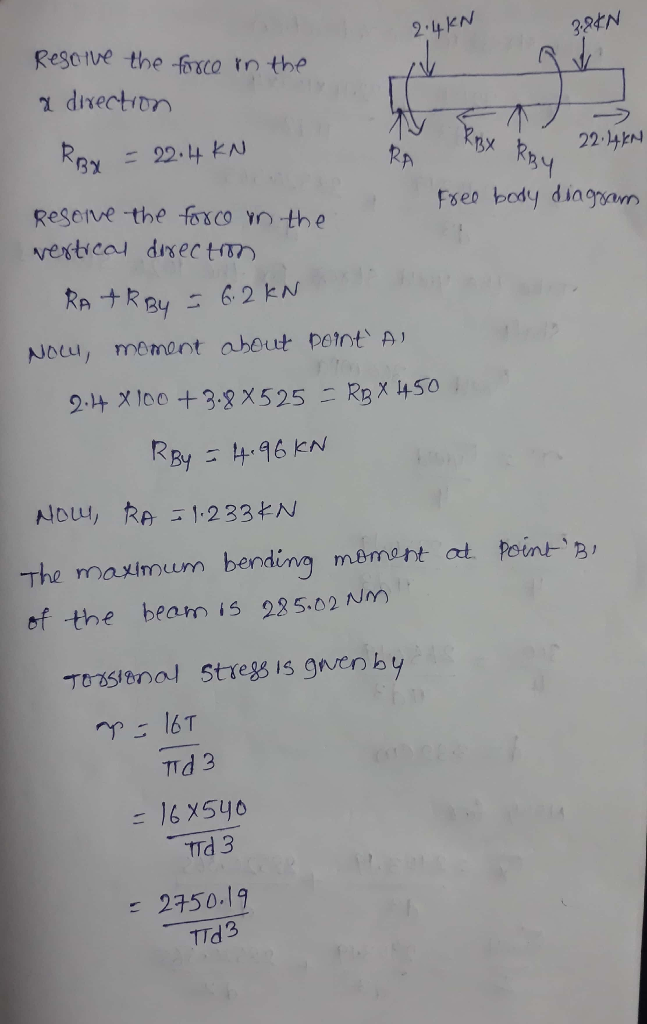 2.4KN 3.8KN
Resolve the force in the
x direction
RBx = 22.4 KN
RA RBx RBy 22.4KN
Free body diagram
Resolve the force in the
vertical direction
RA + RBy = 6.2 KN
Now, moment about point 'A'
2.4 X 100 + 3.8 X 525 = RB X 450
RBy = 4.96 KN
Now, RA = 1.233KN
The maximum bending moment at Point 'B'
of the beam is 285.02 Nm
Torsional stress is given by
τ = 16T
πd3
= 16 X 540
πd3
= 2750.19
πd3